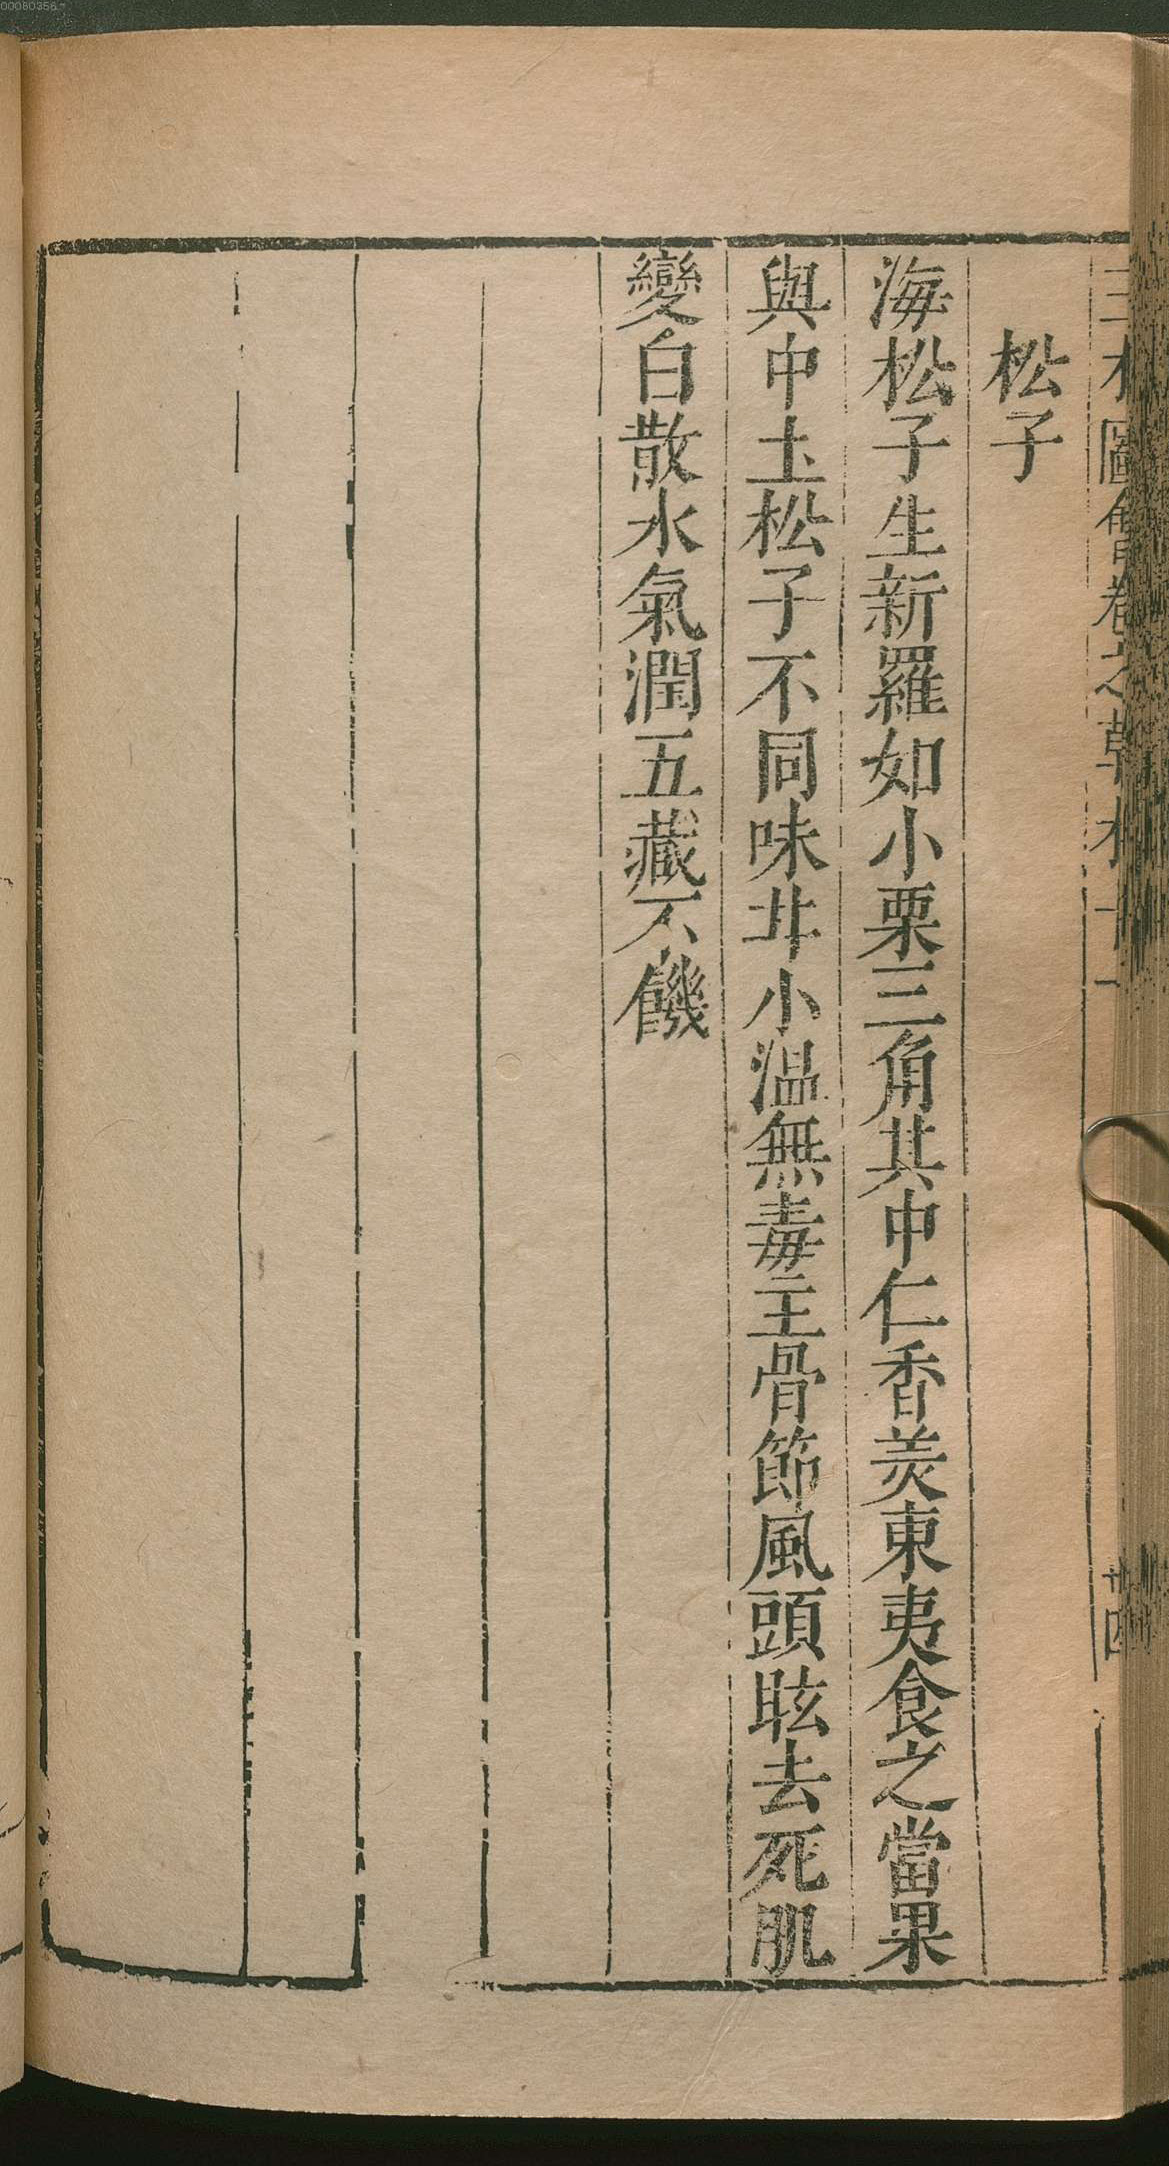 00080356
三才圖會卷之草木十一
卅四
松子
海松子生新羅如小栗三角其中仁香美東夷食之當果
與中土松子不同味甘小温無毒主骨節風頭眩去死肌
變白散水氣潤五藏不饑